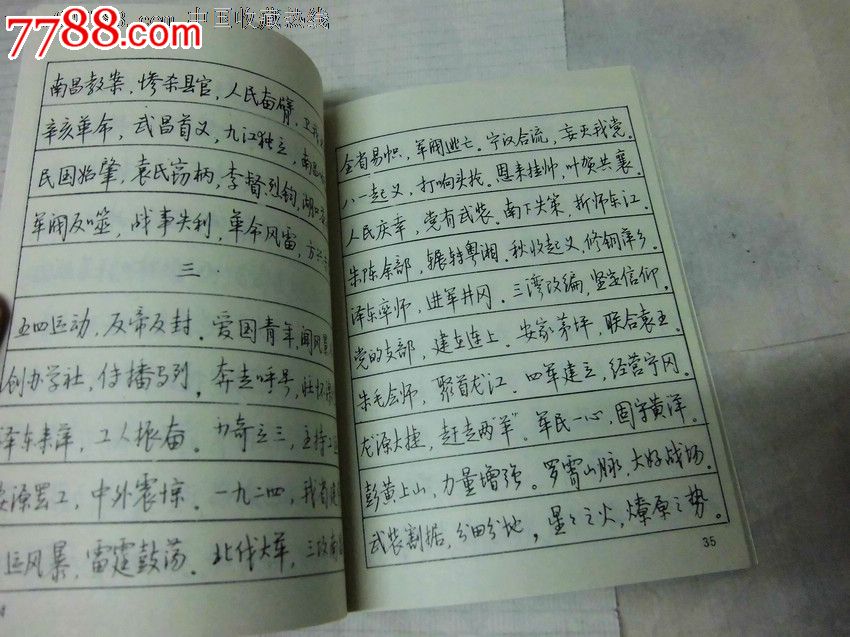 7788.com 中国收藏热线
南昌教案，惨杀县官，人民奋臂，卫我
辛亥革命，武昌首义，九江独立，南昌
民国始肇，袁氏窃柄，李督烈钧，湖口
军阀反噬，战事失利，革命风雷，方兴
三
五四运动，反帝反封。爱国青年，闻风
创办学社，传播马列，奔走呼号，壮怀
泽东来萍，工人振奋。力奇立三，主持
安源罢工，中外震惊。一九二四，我省
运风暴，雷霆鼓荡。北伐大军，三攻南
全省易帜，军阀逃亡。宁汉合流，妄灭我党。
八一起义，打响头抢。恩来挂帅，叶贺共襄。
人民庆幸，党有武装。南下失策，折师东江。
朱陈余部，辗转粤湘。秋收起义，修铜萍乡。
泽东率师，进军井冈。三湾改编，坚定信仰。
党的支部，建立连上。安家茅坪，联合袁王。
朱毛会师，聚首龙江。四军建立，经营宁冈。
龙源大捷，赶走"两羊"。军民一心，固守黄洋。
彭黄上山，力量增强。罗霄山脉，大好战场。
武装割据，分田分地，星之之火，燎原之势。
35